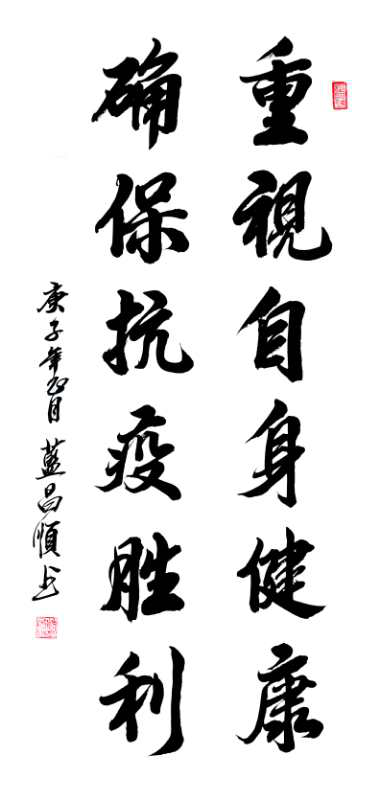 重視自身健康
确保抗疫胜利
庚子年正月 藍昌順书